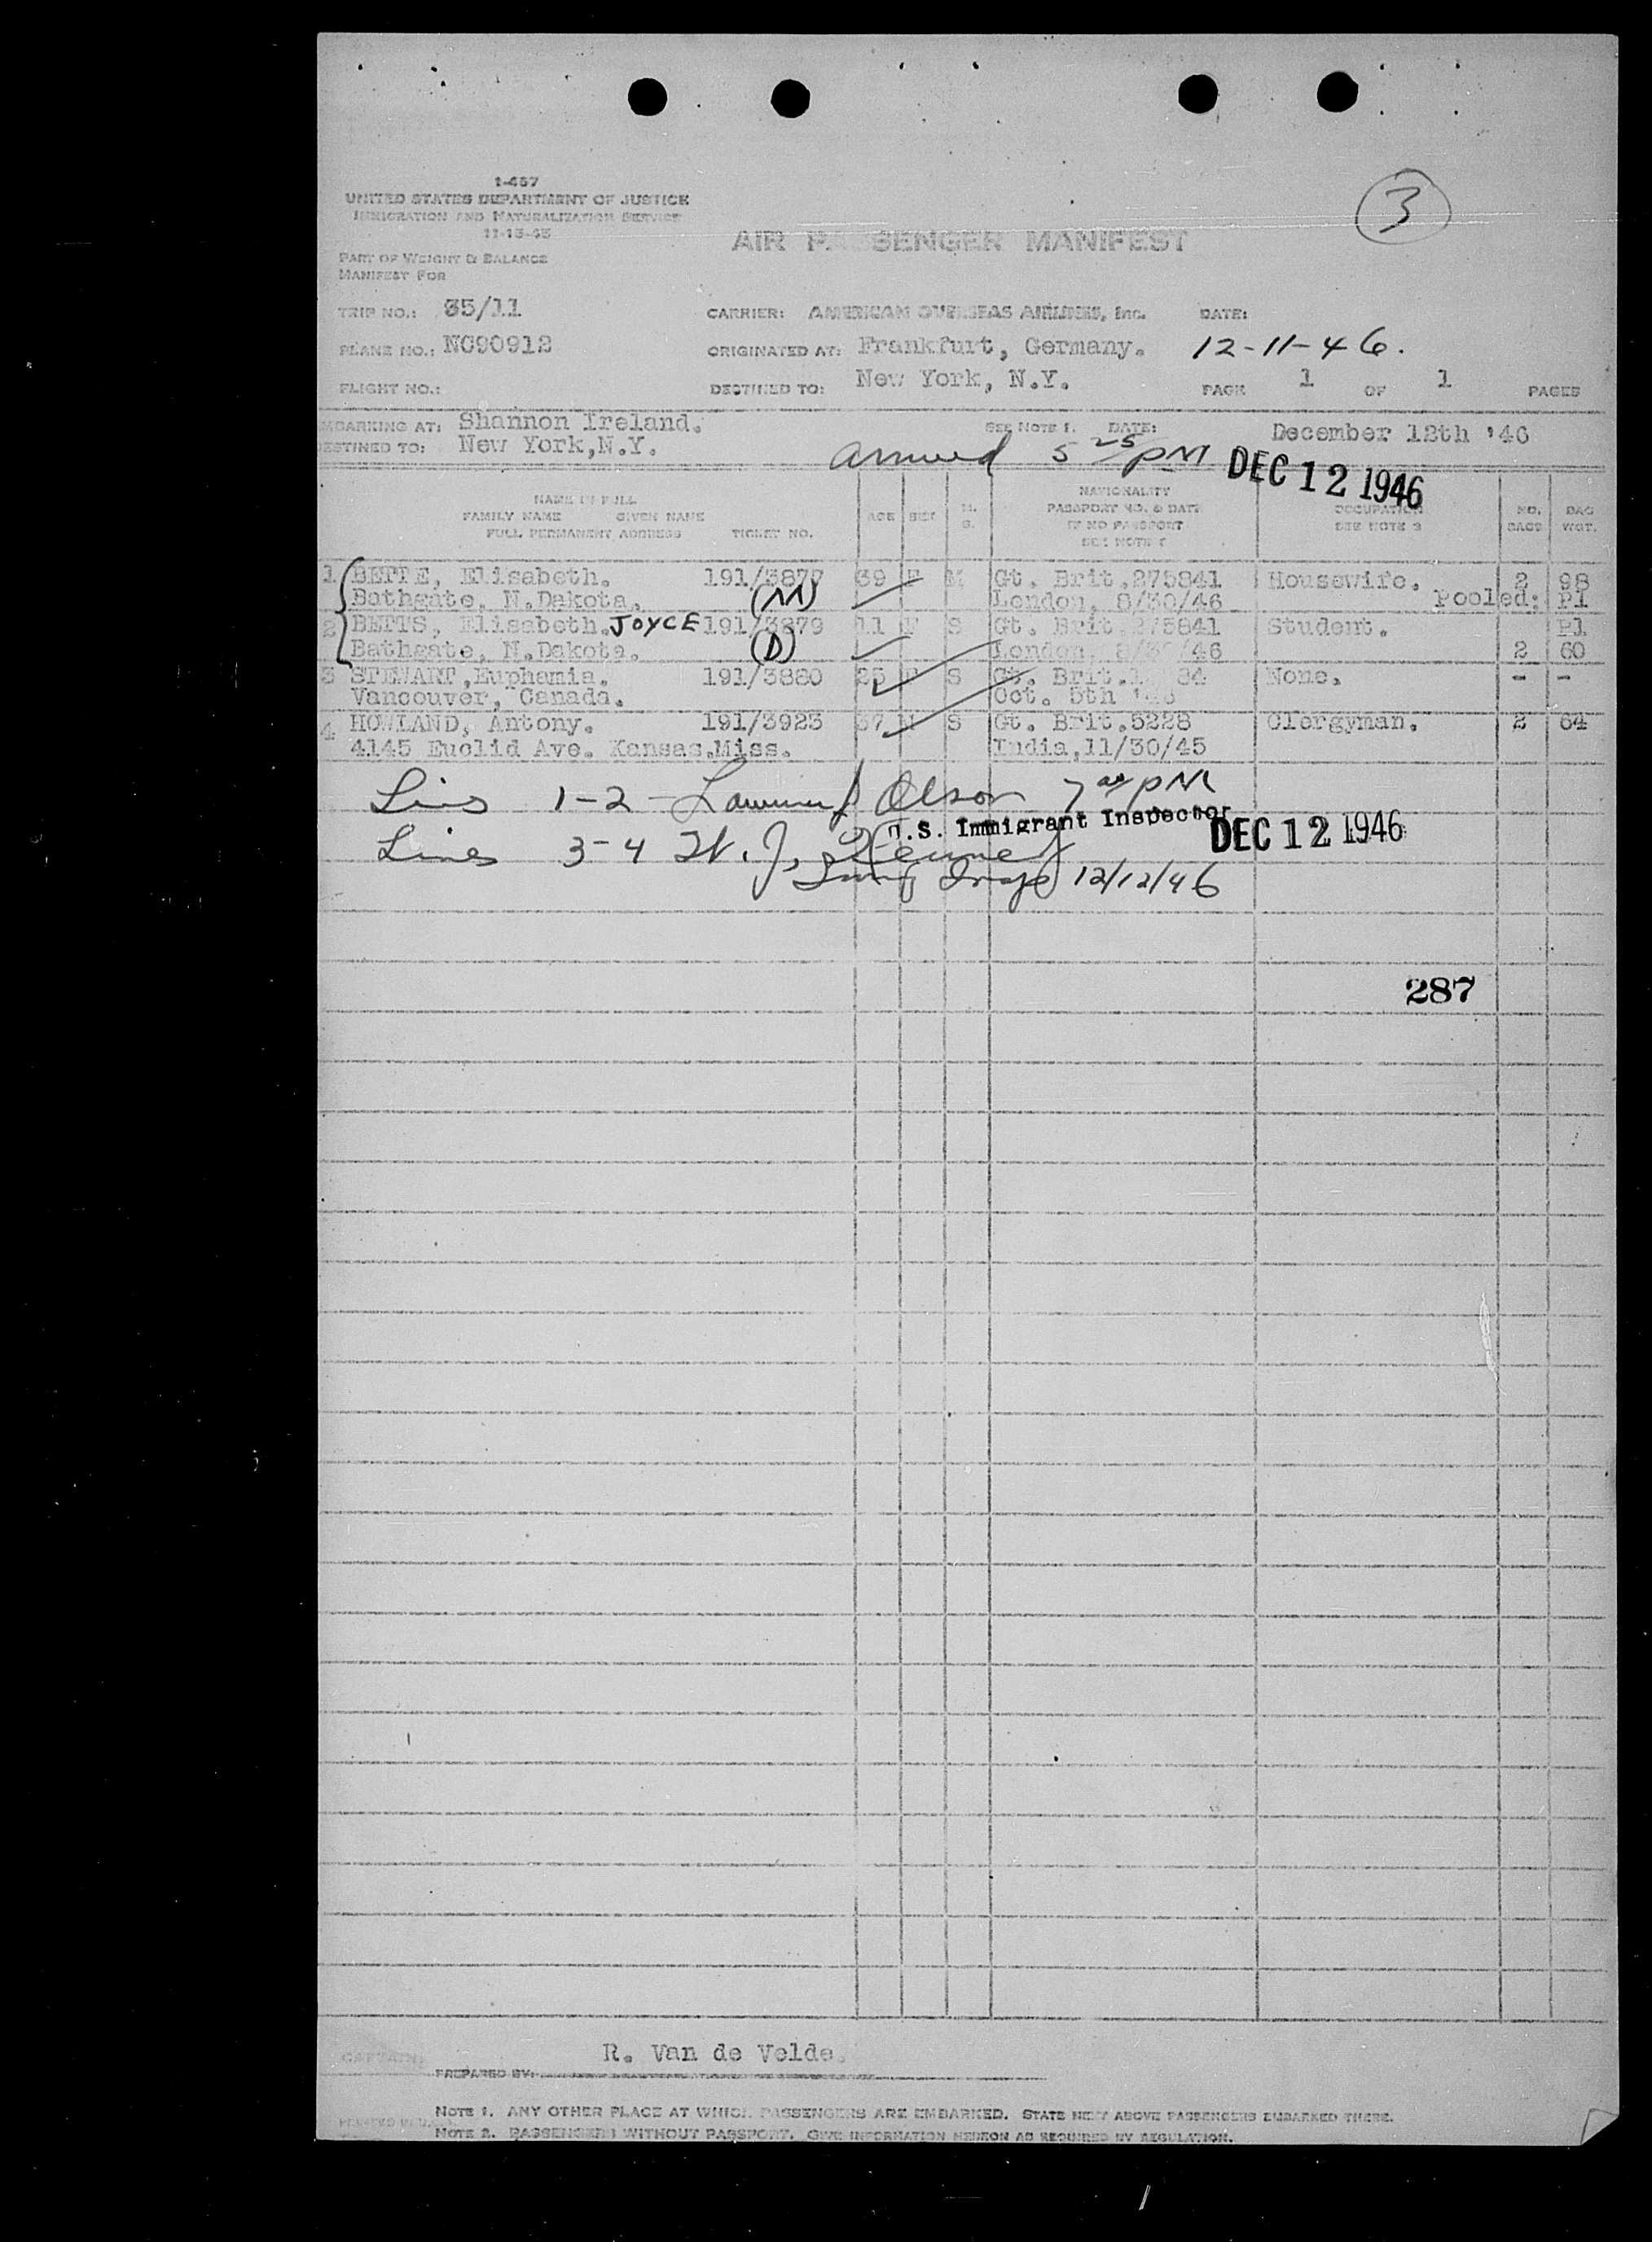 3
I-457
UNITED STATES DEPARTMENT OF JUSTICE
IMMIGRATION AND NATURALIZATION SERVICE
11-15-45
AIR PASSENGER MANIFEST
PART OF WEIGHT & BALANCE
MANIFEST FOR
TRIP NO.: 35/11 CARRIER: AMERICAN OVERSEAS AIRLINES, Inc. DATE:
PLANE NO.: NC90912 ORIGINATED AT: Frankfurt, Germany. 12-11-46.
FLIGHT NO.: DESTINED TO: New York, N.Y. PAGE 1 OF 1 PAGES
EMBARKING AT: Shannon Ireland. SEE NOTE 1. DATE: December 12th '46
DESTINED TO: New York,N.Y. arrived 5 25 PM DEC 12 1946
NAME IN FULL
FAMILY NAME GIVEN NAME
FULL PERMANENT ADDRESS TICKET NO. AGE SEX M. S. NATIONALITY PASSPORT NO. & DATE IF NO PASSPORT SEE NOTE 2 OCCUPATION SEE NOTE 3 NO. BAGS BAG WGT.
1 BETTE, Elisabeth. 191/3877 39 F M Gt. Brit.275841 Housewife. 2 98
Bathgate, N.Dakota. (M) London, 8/30/46 Pooled: P1
2 BETTS, Elisabeth. JOYCE 191/3879 11 F S Gt. Brit.275841 Student. P1
Bathgate, N.Dakota. (D) London, 8/30/46 2 60
3 STEWART,Euphemia. 191/3880 25 F S Gt. Brit. 84 None. - -
Vancouver, Canada. Oct. 5th '46
4 HOWLAND, Antony. 191/3923 37 M S Gt. Brit.5228 Clergyman. 2 64
4145 Euclid Ave. Kansas.Miss. India,11/30/45
Lines 1-2 - Olson 7 PM
U.S. Immigrant Inspector DEC 12 1946
Lines 3-4 W. J.
Immig Insp 12/12/46
287
CAPTAIN:
R. Van de Velde.
PREPARED BY:
NOTE 1. ANY OTHER PLACE AT WHICH PASSENGERS ARE EMBARKED. STATE NEXT ABOVE PASSENGERS EMBARKED THERE.
NOTE 2. PASSENGERS WITHOUT PASSPORT. GIVE INFORMATION HEREON AS REQUIRED BY REGULATION.